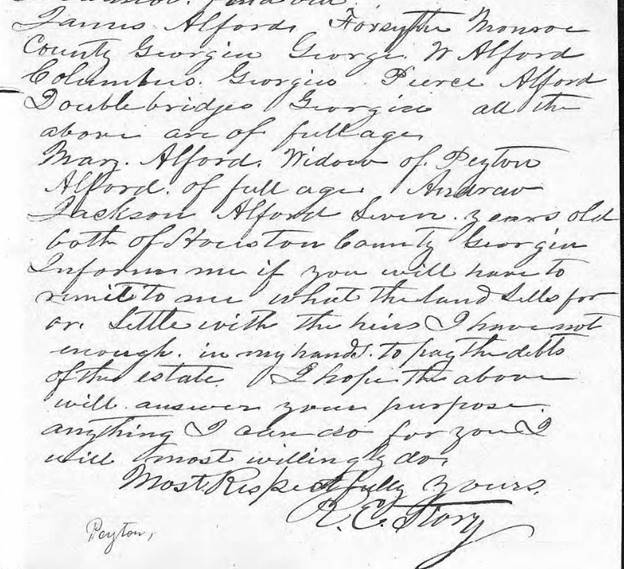 James Alford, Forsythe Monroe
County Georgia George. W Alford
Columbus. Georgia. Pierce Alford
Doublebridges Georgia all the
above are of full age,
Mary. Alford. Widow of. Peyton
Alford. of full age, Andrew
Jackson Alford Seven. years old
both of Houston County Georgia
Inform me if you will have to
remit to me what the land Sells for
or. Settle with the heirs I have not
enough. in my hands. to pay the debts
of the estate. I hope the above
will. answer your purpose.
anything I can do for you I
will most willingly do,
Most Respectfully yours,
Story
Peyton,